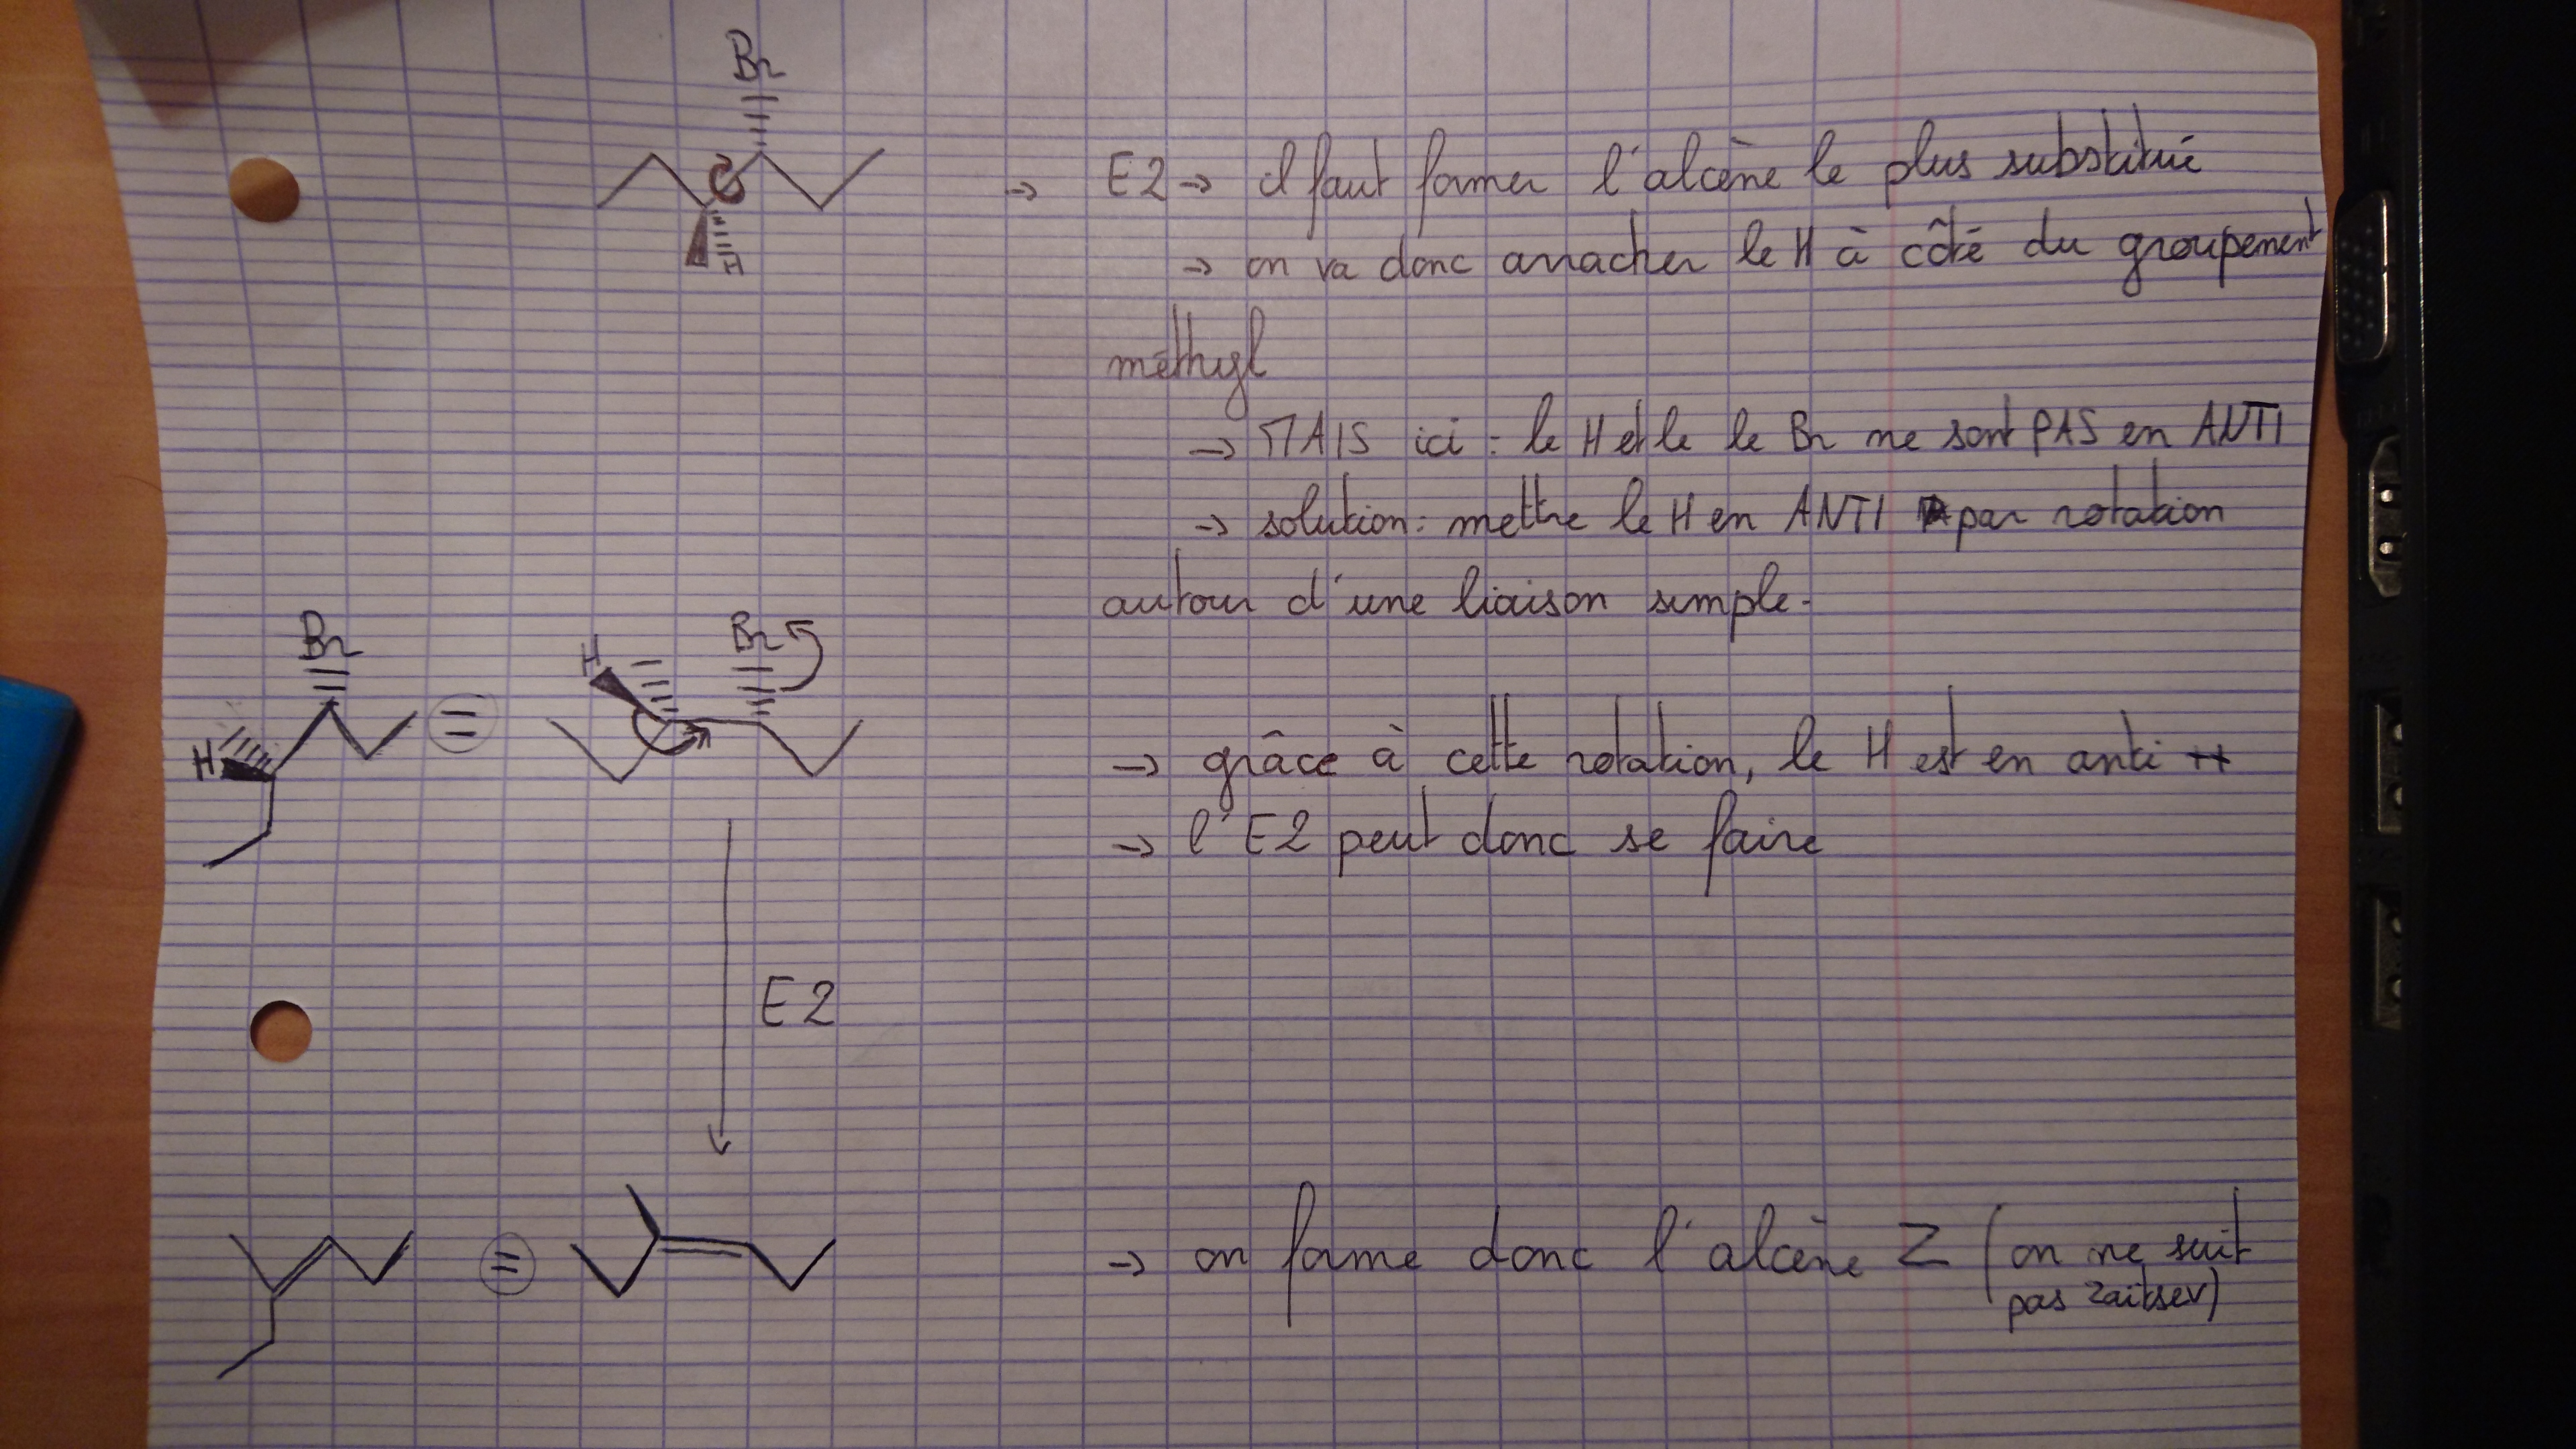 Br
H
→ E2 → il faut former l'alcène le plus substitué
→ on va donc arracher le H à côté du groupement
méthyl
→ MAIS ici : le H et le le Br ne sont PAS en ANTI
→ solution : mettre le H en ANTI par rotation
autour d'une liaison simple.
Br
H
=
H
Br
→ grâce à cette rotation, le H est en anti
→ l'E2 peut donc se faire
E2
=
→ on forme donc l'alcène Z (on ne suit
pas Zaitsev)